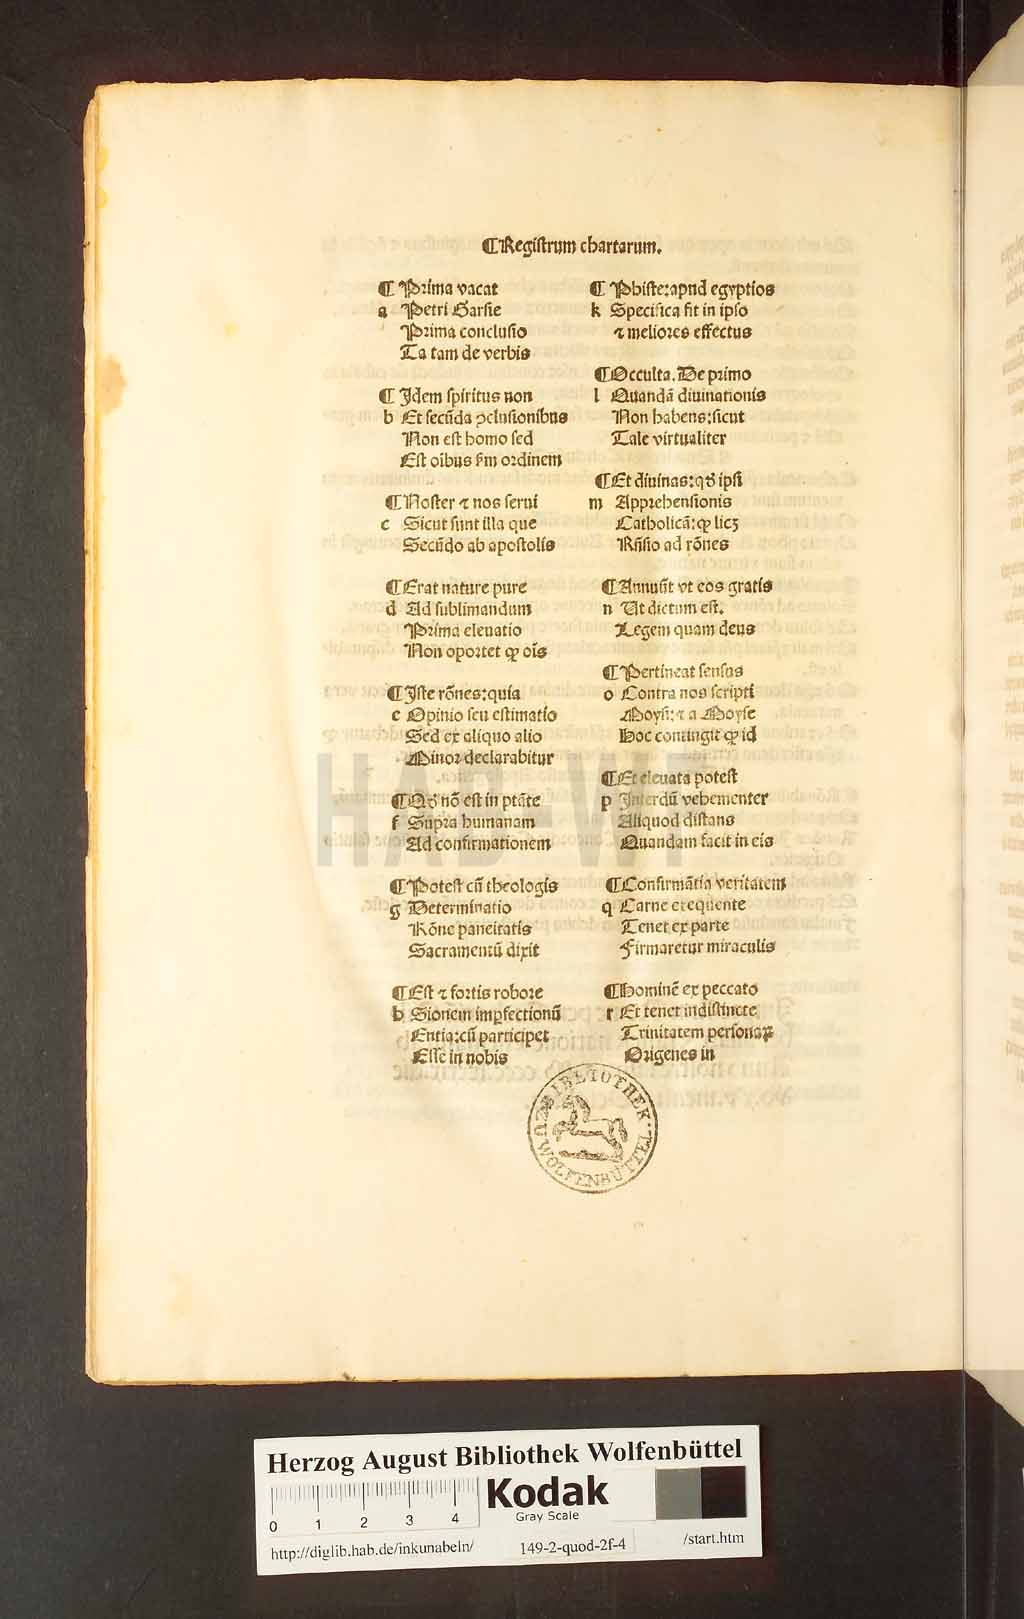 ¶Registrum chartarum.
¶ Prima vacat
a Petri Garsie
Prima conclusio
Ta tam de verbis
¶ Idem spiritus non
b Et secūda ꝯclusionibus
Non est homo sed
Est oībus ẜm ordinem
¶Noster ⁊ nos serui
c Sicut sunt illa que
Secūdo ab apostolis
¶Erat nature pure
d Ad sublimandum
Prima eleuatio
Non oportet ꝙ oīs
¶Iste rōnes:quia
e Opinio seu estimatio
Sed ex aliquo alio
Minor declarabitur
¶Qꝛ nō est in ptāte
f Supra humanam
Ad confirmationem
¶Potest cū theologis
g Determinatio
Rōne paneitatis
Sacramentū dixit
¶Est ⁊ fortis robore
h Sionem imꝑfectionū
Entia:cū participet
Esse in nobis
¶ Phiste:apud egyptios
k Specifica fit in ipso
⁊ meliores effectus
¶Occulta.De primo
l Quandā diuinationis
Non habens:sicut
Tale virtualiter
¶Et diuinas:qꝛ ipsi
m Apprehensionis
Catholicā:ꝙ licꝫ
Rn̄sio ad rōnes
¶Annuūt vt eos gratis
n Ut dictum est.
Legem quam deus
¶Pertineat sensus
o Contra nos scripti
Moysi:⁊ a Moyse
Hoc contingit ꝙ id
¶Et eleuata potest
p Interdū vehementer
Aliquod distans
Quandam facit in eis
¶Confirmātia veritatem
q Carne et equente
Tenet ex parte
Firmaretur miraculis
¶Hominē ex peccato
r Et tenet indistincte
Trinitatem personaꝝ
Origenes in
BIBLIOTHEK WOLFENBÜTTEL
HAB-WF
Herzog August Bibliothek Wolfenbüttel
0 1 2 3 4
Kodak
Gray Scale
http://diglib.hab.de/inkunabeln/ 149-2-quod-2f-4 /start.htm